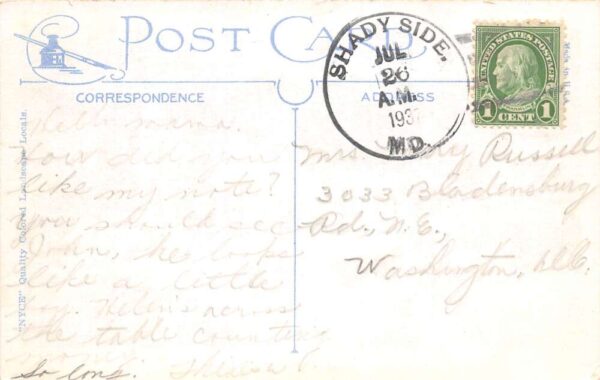 POST CARD
SHADY SIDE.
JUL
26
A.M.
193
MD.
UNITED STATES POSTAGE
1 CENT 1
Made in U.S.A.
CORRESPONDENCE
ADDRESS
"NYCE" Quality Colored Landscape Locals.
Hello mama.
How did you
like my note?
You should see
John, he looks
like a little
boy. Helen's across
the table counting
So long.
Mrs. Russell
3033 Bladensburg
Rd., N.E.,
Washington, D.C.